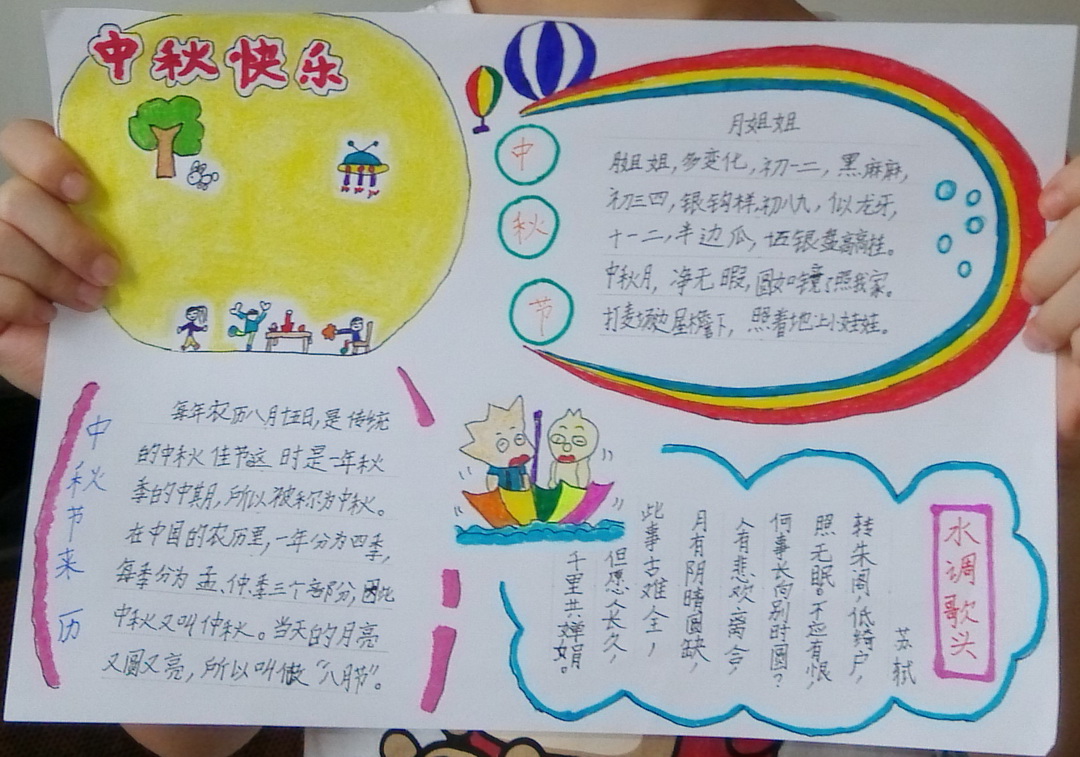 中秋快乐
中
秋
节
月姐姐
月姐姐,多变化,初一二,黑麻麻,
初三四,银钩样,初八九,似龙牙,
十一二,半边瓜,十五银盘高高挂。
中秋月,净无暇,圆如镜子照我家。
打麦场边屋檐下,照着地上小娃娃。
中秋节来历
每年农历八月十五日,是传统
的中秋佳节这时是一年秋
季的中期,所以被称为中秋。
在中国的农历里,一年分为四季,
每季分为孟、仲、季三个部分,因此
中秋又叫仲秋。当天的月亮
又圆又亮,所以叫做“八月节”。
水调歌头
苏轼
转朱阁,低绮户,
照无眠。不应有恨,
何事长向别时圆?
人有悲欢离合,
月有阴晴圆缺,
此事古难全,
但愿人长久,
千里共婵娟。